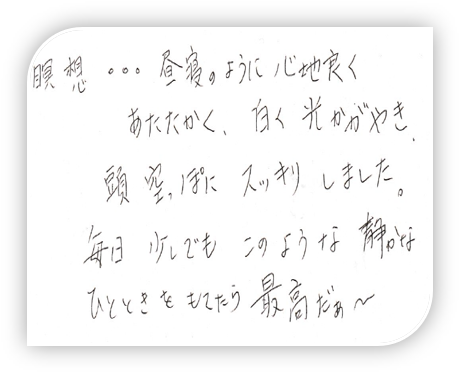 瞑想 ・・・ 昼寝のように 心地良く
あたたかく、白く 光かがやき、
頭 空っぽに スッキリ しました。
毎日 少しでも このような 静かな
ひとときを もてたら 最高だぁ〜